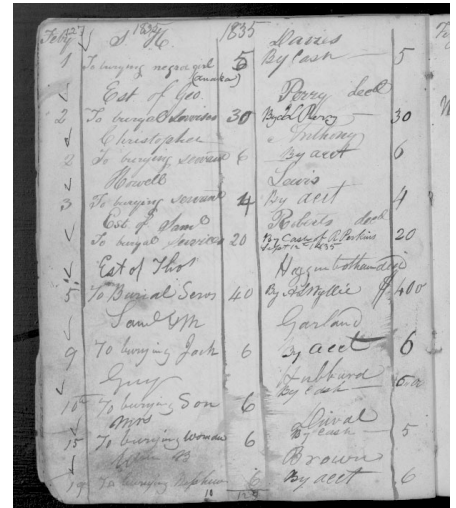 Feby 1835 1835
S H. Davis
1 To burying negro girl 5 By Cash 5
(Anaka)
Est of Geo. Perry decd
2 To burial Services 30 By 30
Christopher Anthony
2 To burying servant 6 By acct 6
Howell Lewis
3 To burying servant 4 By acct 4
Est. of Saml Roberts decd
To burial Services 20 By Cash of A Perkins 20
Sept 12 1835
Est of Thos Higginbotham decd
5 To Burial Servs 40 By A S Wyllie 400
Saml M Garland
9 To burying Jack 6 By acct 6
Guy Hubbard
10 To burying Son 6 By Cash
Mrs Duval
15 To burying woman 6 By Cash 5
Brown
19 To burying Nephew 6 By acct 6
10